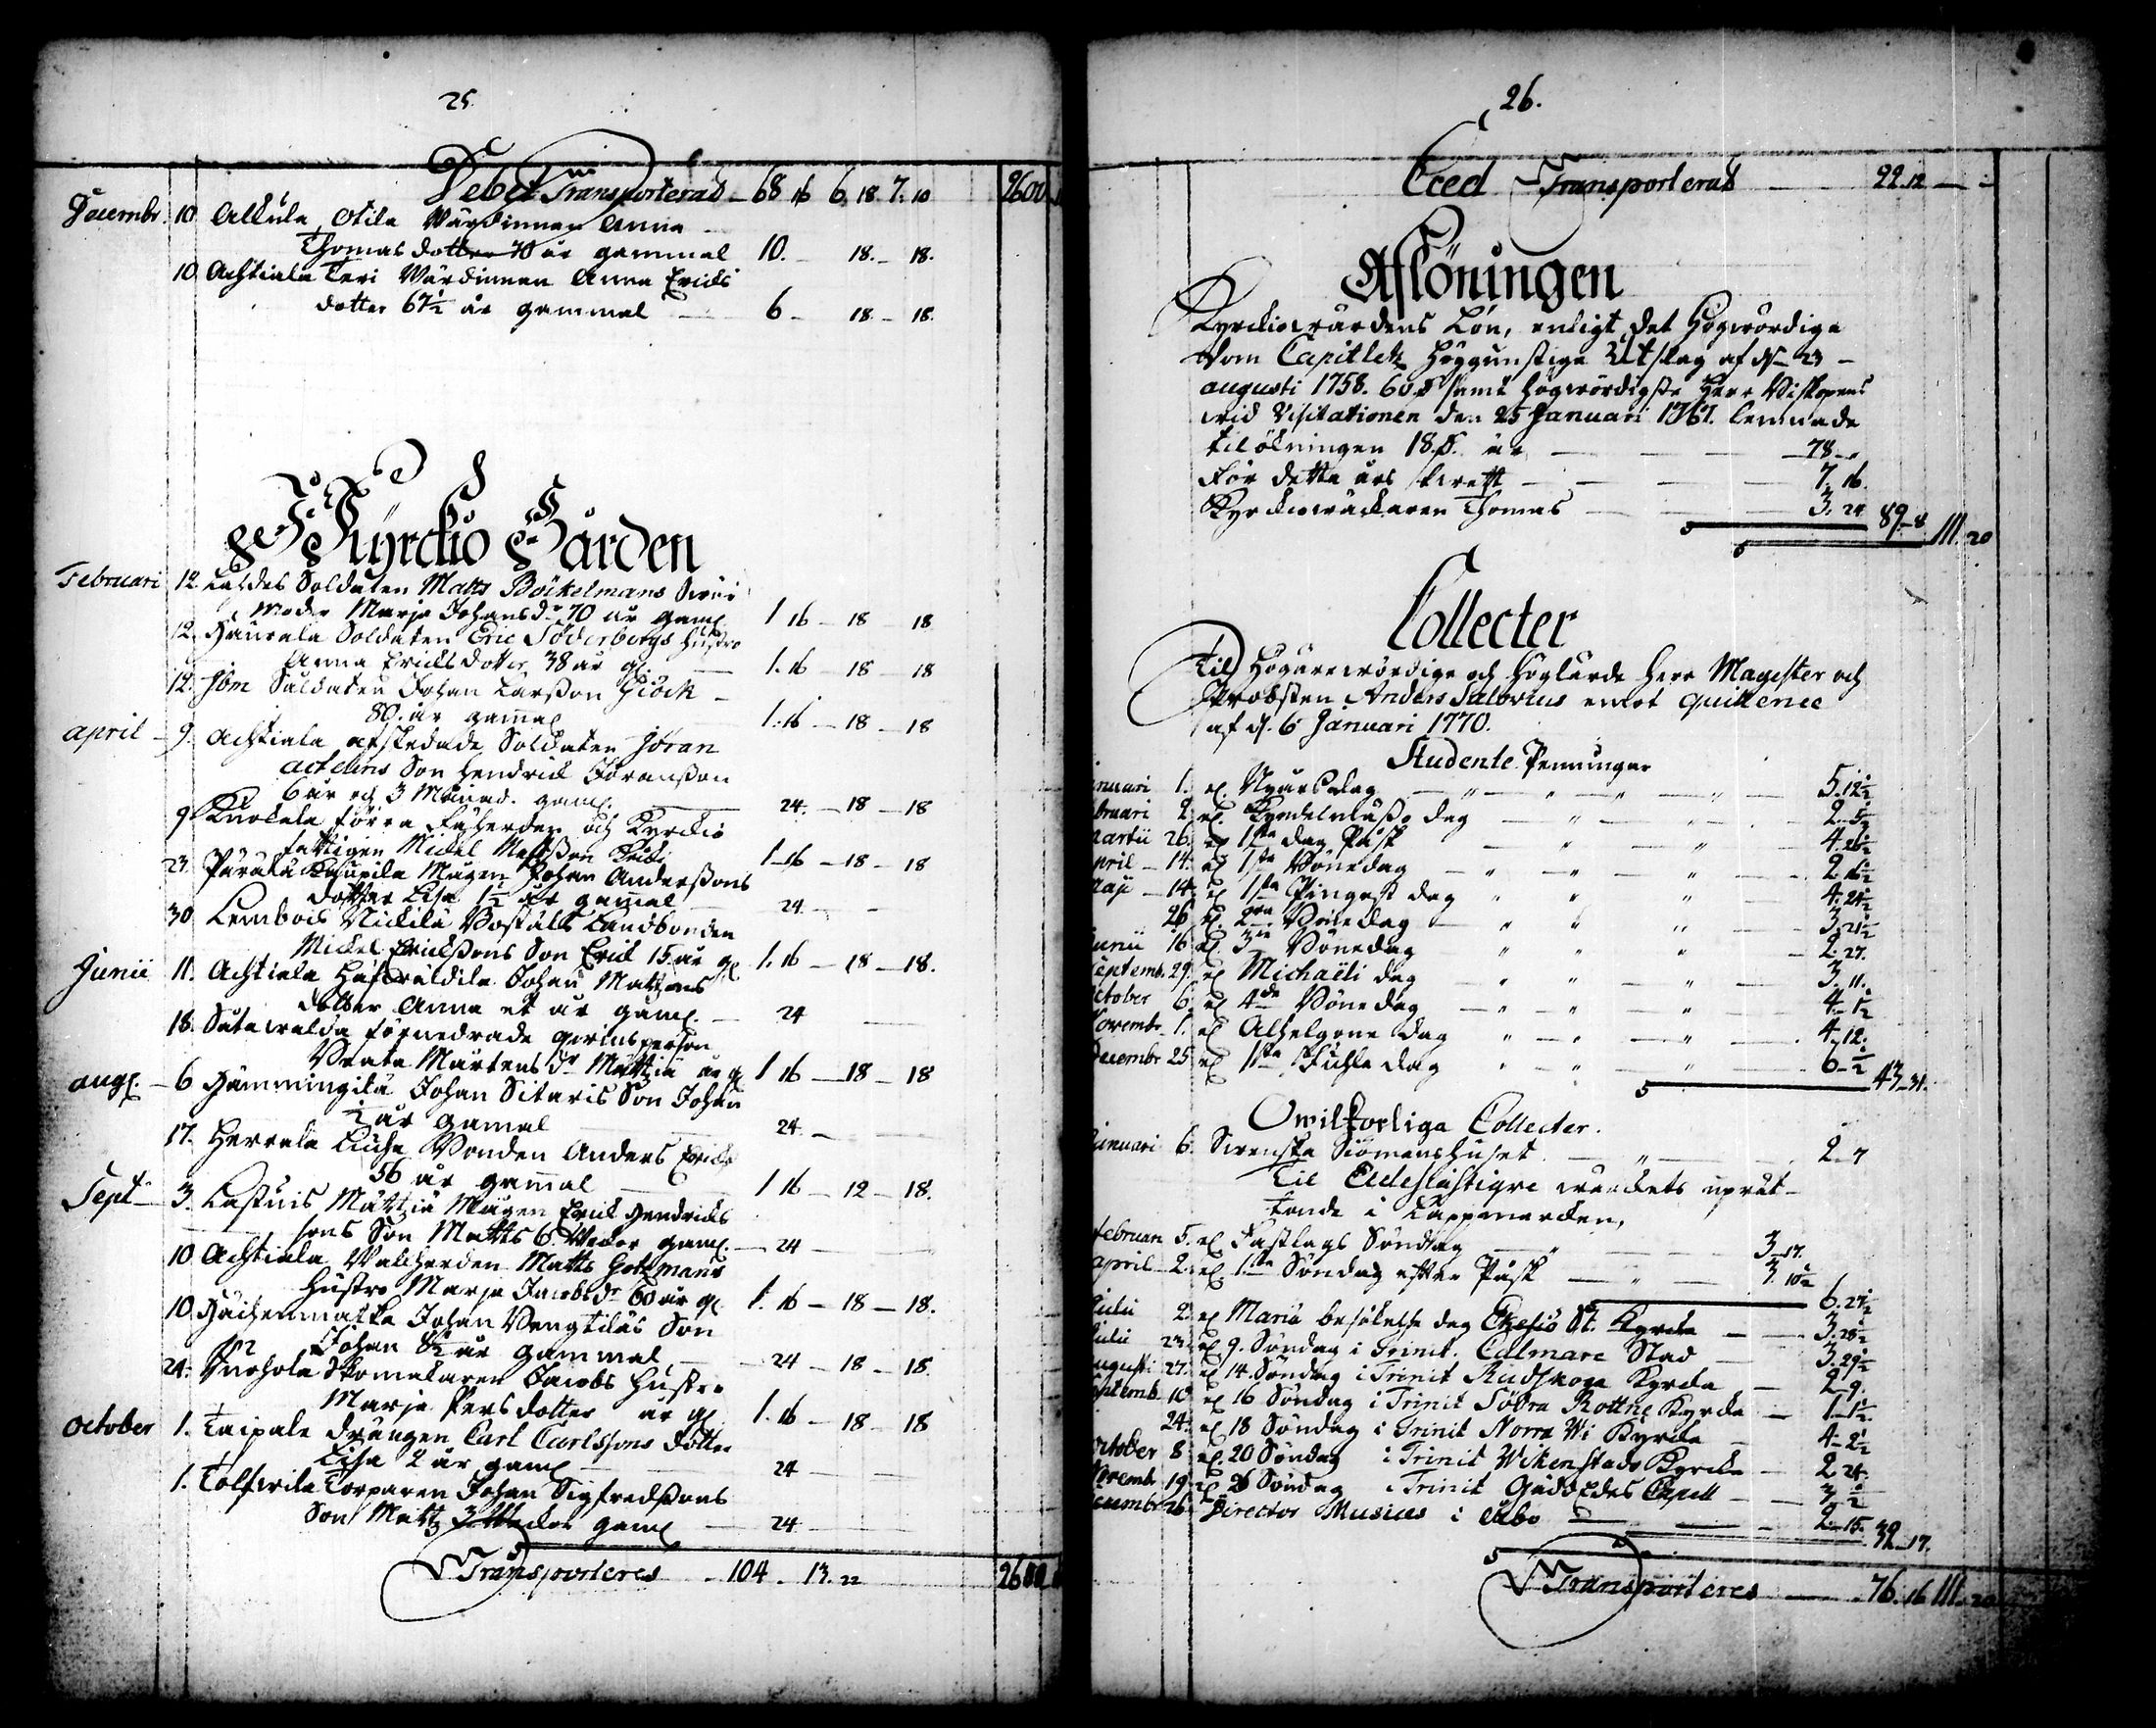 25.
Debet Transporterad - 68 16 6. 18 7. 10 2600
Decembr. 10 Alkula, Otila Wärdinnan Anna
Thomas dotter 70 år gammal 10. - 18. - 18.
10 Achtiala Teri Wärdinnan Anna Erichs
dotter 67½ år gammal 6 - 18 - 18.
I Kyrckio Gården
Februari 12. Soldaten Matts Böckelmans
moder Marja Johansdr 70 år gaml 1 16 - 18 18
12. Haurala Soldaten Eric Söderbergs hustro
Anna Erichsdotter 38 år gl. 1. 16 - 18 - 18
12. Ibm Soldaten Johan Larsson Hiöck -
80. år gammal 1. 16 - 18 - 18
april - 9. Achtiala afskedade Soldaten Jöran
Son Hendrich Göransson
6 år och 3 Månad. gaml. 24. - 18 - 18
9 förra och Kyrckio
fattigen Michel Mattsson 1 - 16 - 18 - 18
23. Kaupila Mågen Johan Anderssons
dotter Lisa 1½ år gamal 24 - -
30 Lembois Nickilä Boställs Landbonden
Michel Erichssons Son Erich 15. år gl. 1. 16 - 18 - 18.
Junii 11. Achtiala Johan Mattsons
dotter Anna et år gaml. - 24
18. förnedrade qwinsperson
Beata Mårtensdr Mattila år gl 1 16 - 18 - 18
augl. - 6 Hämmingilä Johan Sitaris Son Johan
½ år gamal 24. -
17. Herrala Bonden Anders Erichs
56 år gammal 1 16 - 12 - 18.
Sept - 3. Mattila Mågen Erich Hendrichs
sons Son Matts 6. Wekor gaml. - 24 -
10 Achtiala Wallherden Matts Gottmans
Hustro Marja Jacobsdr 60 år gl. 1. 16 - 18 - 18.
10. Häihenmatka Johan Bengtilas Son
Johan 8½ år gammal, 24 - 18 - 18.
24. Skomakaren Jacobs Hustro
Marja Persdotter år gl 1. 16 - 18 - 18
October 1. Taipale drängen Carl Carlssons dotter
Lisa 2 år gaml 24 -
1. Tolfwila Torparen Johan Sigfredssons
Son Matts 3 Wekor gaml 24
Transporteres - 104 - 13. 22 2600
26.
Cred Transporterat 22. 12 -
Aflöningen
Kyrckiowärdens Lön, enligt det Högwördige
Dom Capitlets höggunstige Utslag af d. 23 -
augusti 1758. 60. samt högwördigste Herr Biskopens
wid Visitationen den 25 Januari 1767. lemnade
tilökningen 18. är 78 -
För detta års 7. 16.
Kyrckiowäckaren Thomas 3. 24 89 - 8 111. 20
Collecter
Til Högärewördige och höglärde Herr Magister och
Probsten Anders Salovius enligt quittence
af d. 6 Januari 1770.
Studente Penningar
nuari 1. el. Nyårsdag 5. 12½
bruari 2. el. Kyndelmässo dag 2. 5½
martii 26. el 1sta dag Påsk 4. 26½
pril - 14. el 1sta Bönedag 2 16½
maji - 14. el 1sta Pingst dag 4. 24½
26. el. 2dra Bönedag 3. 21½
unii 16 el. 3die Bönedag 2. 27.
eptemb. 29. el Michaëli dag 3. 11.
ctober 6. el 4de Bönedag 4 - 1½
ovembr. 1. el Alhelgone dag 4. 12.
ecembr 25 el 1sta Juhledag 6 - ½
43 - 31.
Owilkorliga Collecter.
Januari 6. Swenska Siömanshuset 2 - 7
Til Ecclesiastique wärckets uprät-
tande i Lappmarcken,
februari 5. el Fastlags Söndag 3 - 17.
april 2. el. 1sta Söndag efter Påsk 3. 10½
6. 27½
Julii 2. el Mariä besökelse dag Ekesiö St. Kyrcka 3. 28½
ulii 23. el 9. Söndag i Trinit. Calmare Stad 3. 29½
ugusti 27. el 14. Söndag i Trinit Rudskoga Kyrcka - 2. 9.
ptemb. 10 el 16 Söndag i Trinit Södra Rottne Kyrcka - 1 - 1½
24. el 18 Söndag i Trinit Norra Wi Kyrcka - 4 - 2½
ctober 8 el. 20 Söndag i Trinit Wikenstads Kyrcka - 2 24.
ovemb. 19. el 26 Söndag i Trinit Gäddedes Capell - 3 - ½
ecembr 26. Director Musices i Åbo - 2. 15. 32. 17.
Transporteres 76. 16 111. 20